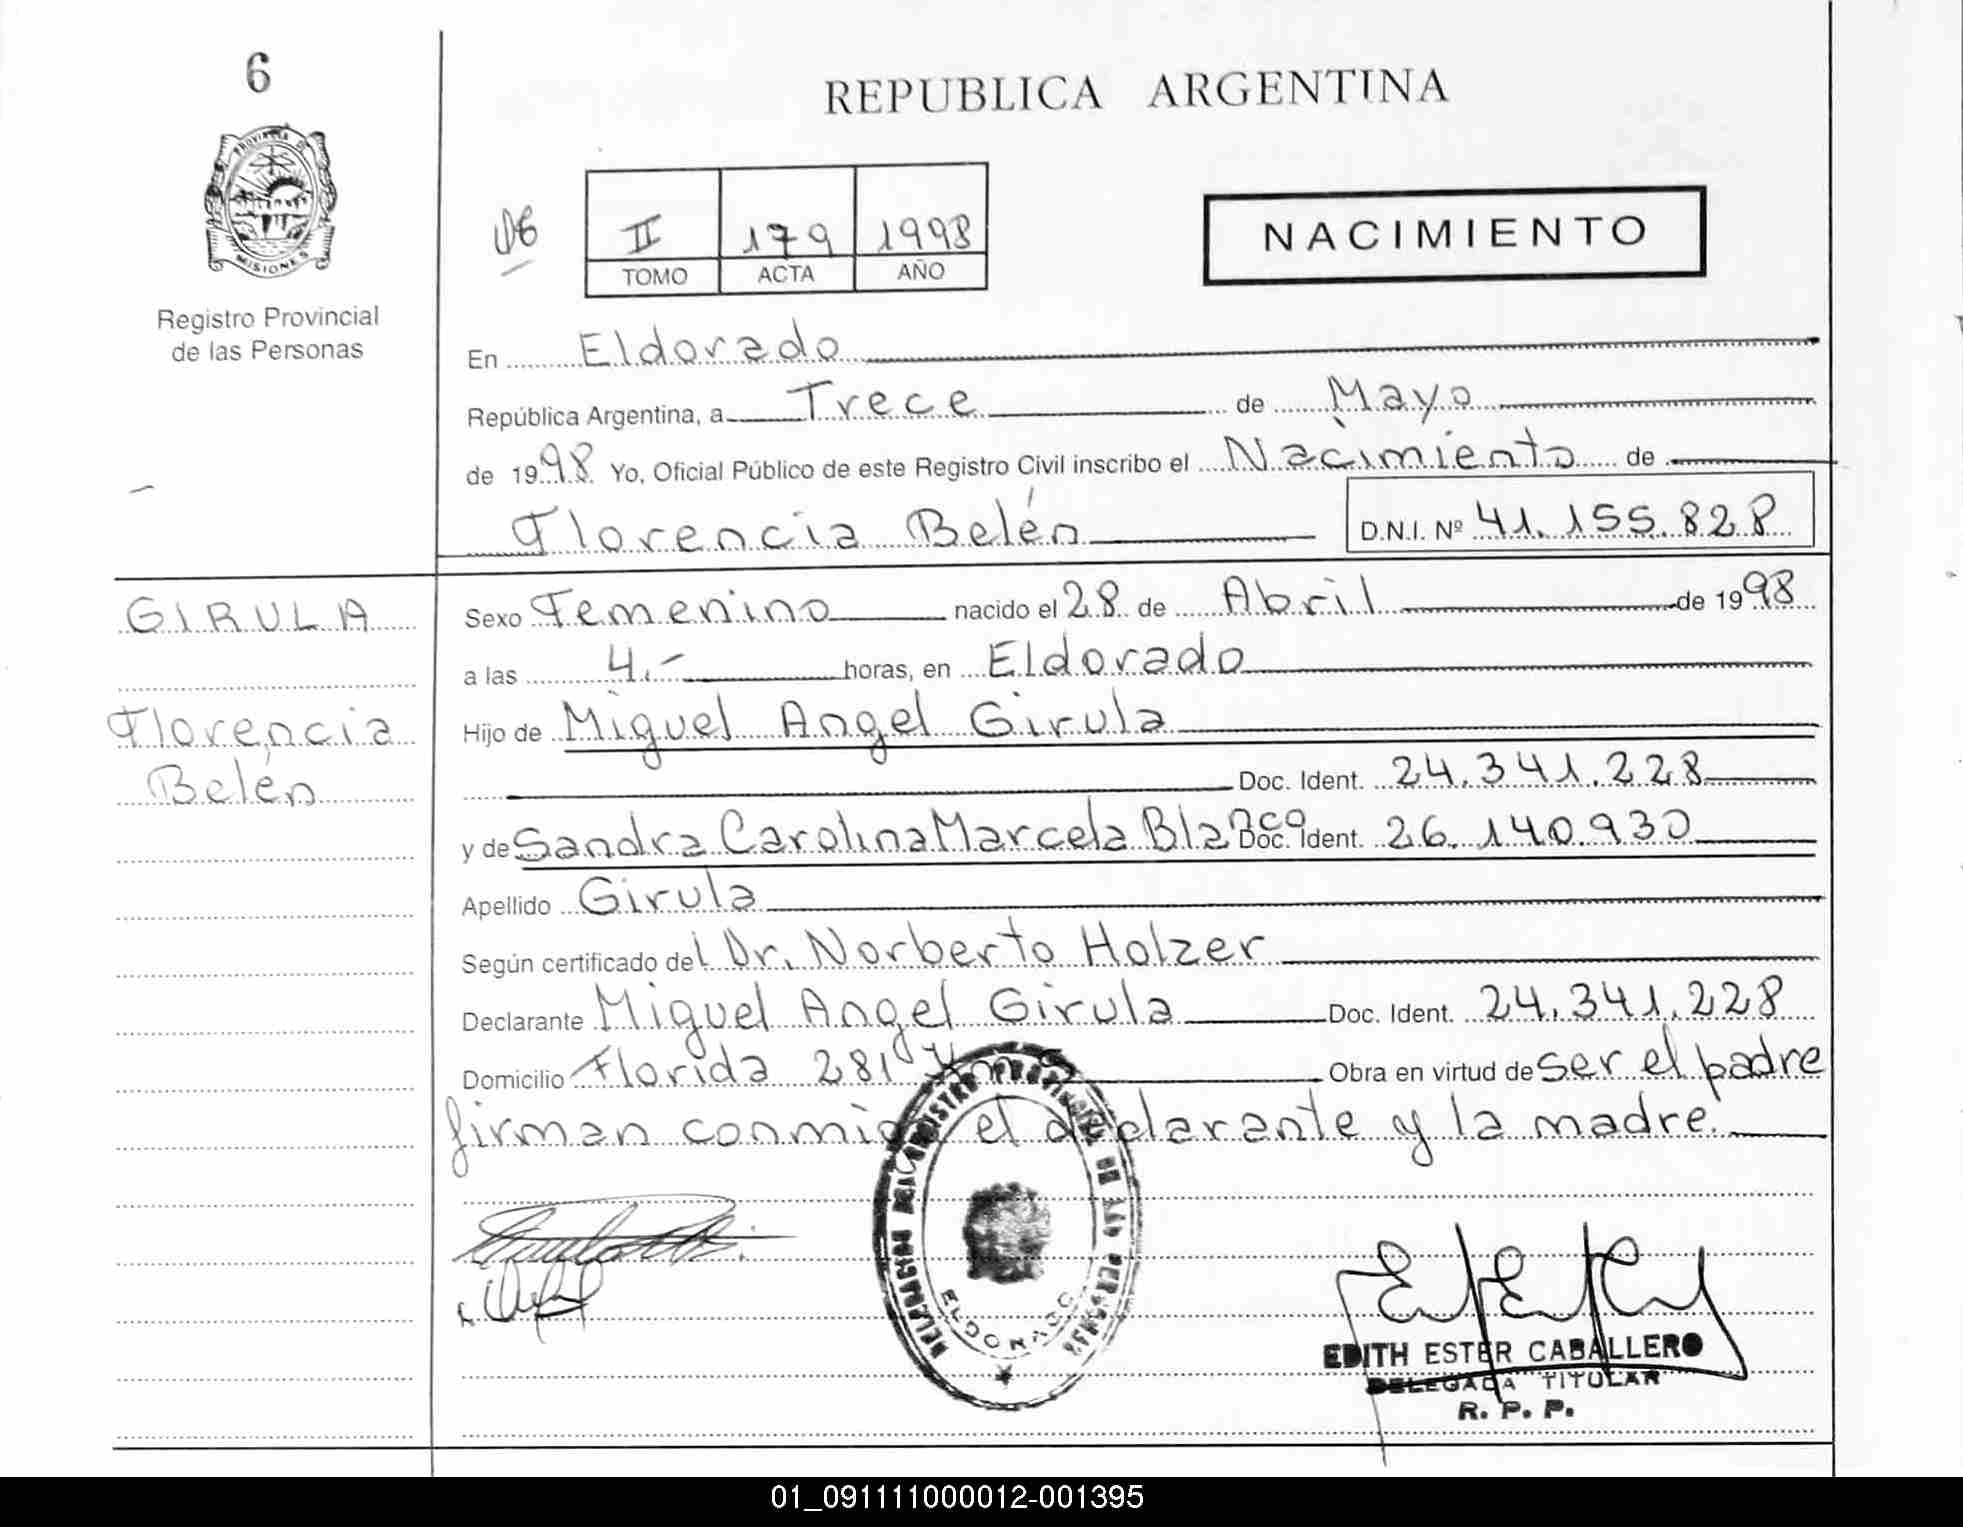 6
REPUBLICA ARGENTINA
PROVINCIA D
MISIONES
Registro Provincial
de las Personas
II 179 1998
TOMO ACTA AÑO
NACIMIENTO
En Eldorado
República Argentina, a Trece de Mayo
de 1998 Yo, Oficial Público de este Registro Civil inscribo el Nacimiento de
Florencia Belén D.N.I. Nº 41.155.828
GIRULA
Florencia
Belén
Sexo Femenino nacido el 28 de Abril de 1998
a las 4.- horas, en Eldorado
Hijo de Miguel Angel Girula
Doc. Ident. 24.341.228
y de Sandra Carolina Marcela Blanco Doc. Ident. 26.140.930
Apellido Girula
Según certificado del Dr. Norberto Holzer
Declarante Miguel Angel Girula Doc. Ident. 24.341.228
Domicilio Florida 281 Obra en virtud de ser el padre
firman conmigo el declarante y la madre.
ELDORADO
EDITH ESTER CABALLERO
DELEGADA TITULAR
R. P. P.
01_091111000012-001395